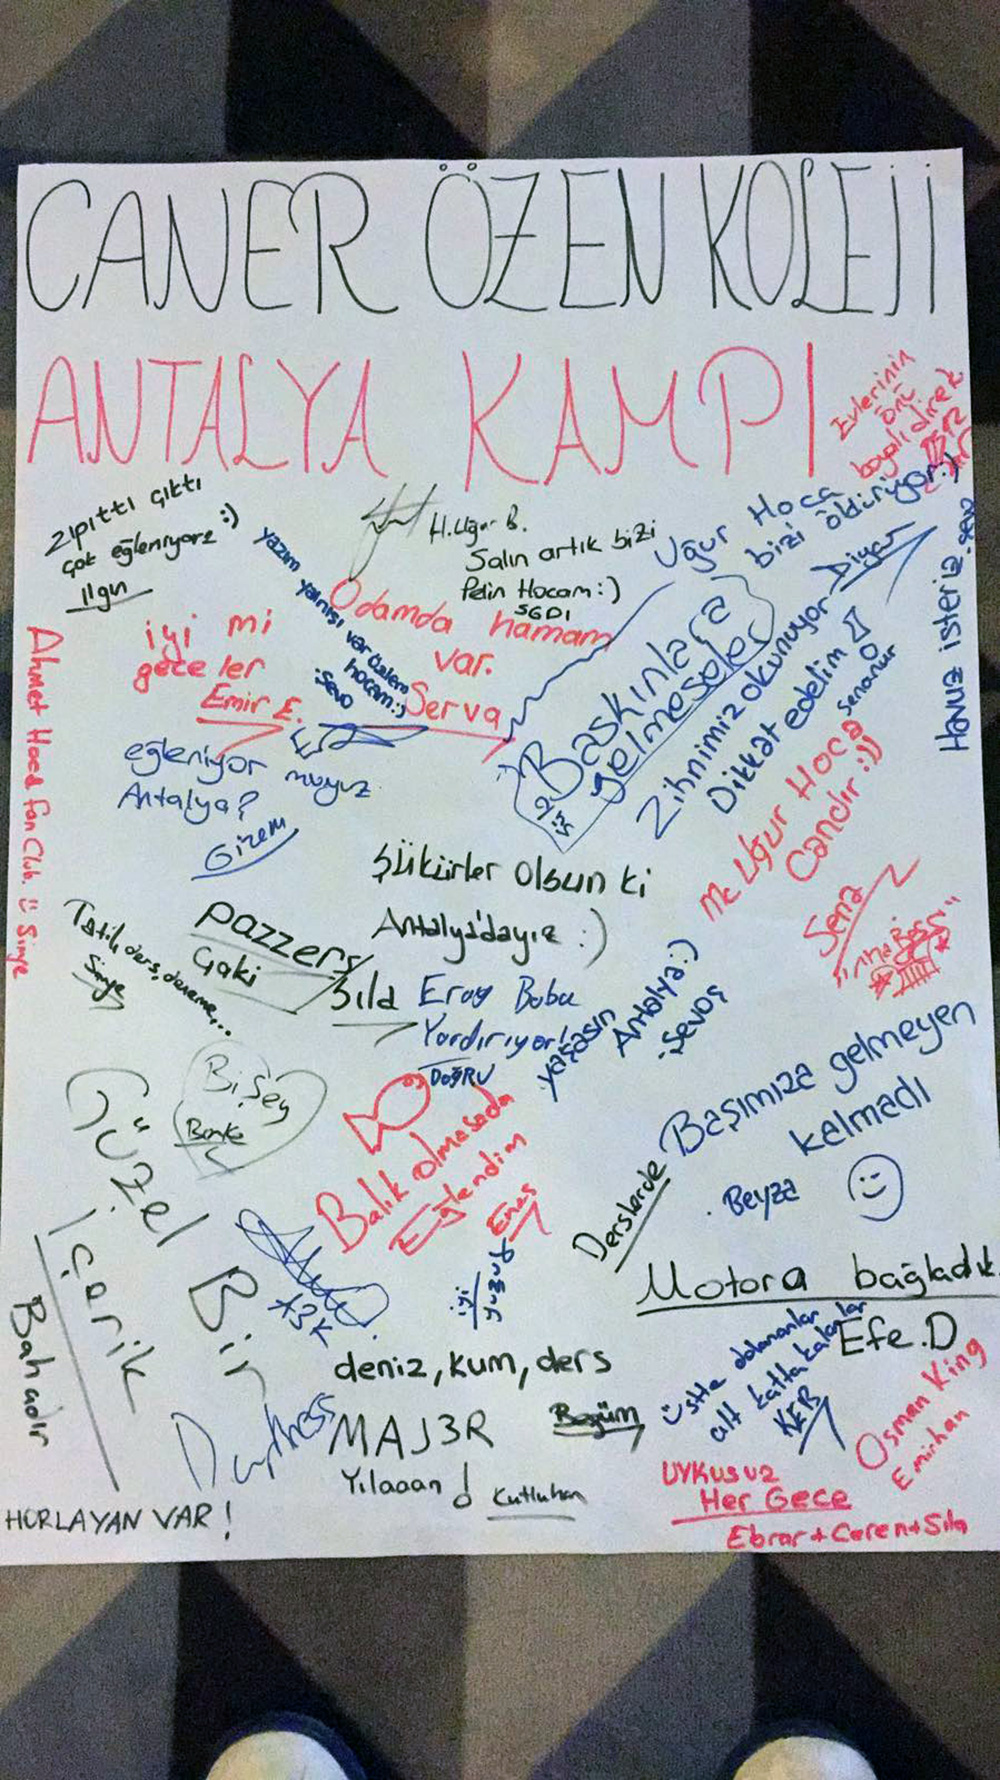 CANER ÖZEN KOLEJİ
ANTALYA KAMPI
Evlerinin
önü
boyalı direk
zıpıttı çıktı
çok eğleniyorz :)
Ilgın
H.Uğur B.
Salın artık bizi
Pelin Hocam :)
SGDI
Uğur Hoca
bizi öldürüyor :)
Diyar
Havuz isteriz.
sevo
yazım yanlışı var özlem
hocam :)
:Sevo
Odamda hamam
var.
Serva
iyi mi
geceler
Emir E.
Baskınlara
gelmeseler
Zihnimiz okunuyor
Dikkat edelim
senanur
Ahmet Hoca Fan Club. Simge
eğleniyor muyuz
Antalya?
Gizem
Mc Uğur Hoca
Candır :))
Sena
Şükürler Olsun ki
Antalya'dayız :)
Sıla
pazzers
Gaki
Tatil, ders, deneme...
Simge
Eray Baba
Yardırıyor!
DOĞRU
yaşasın
Antalya :)
:Sevoş
Bişey
Berke
Balık olmasada
Eğlendim
Enes
Başımıza gelmeyen
kalmadı
Beyza
Derslerde
Motora bağladık
Efe.D
Güzel
Bir
İçerik
Bahadır
A3K
iyi
deniz, kum, ders
Begüm
üstte dolananlar
alt katta kalanlar
KEB
Osman King
Emirhan
MAJ3R
Yılaaan!
Kutluhan
UYKUSUZ
Her Gece
Ebrar+Ceren+Sıla
HORLAYAN VAR!